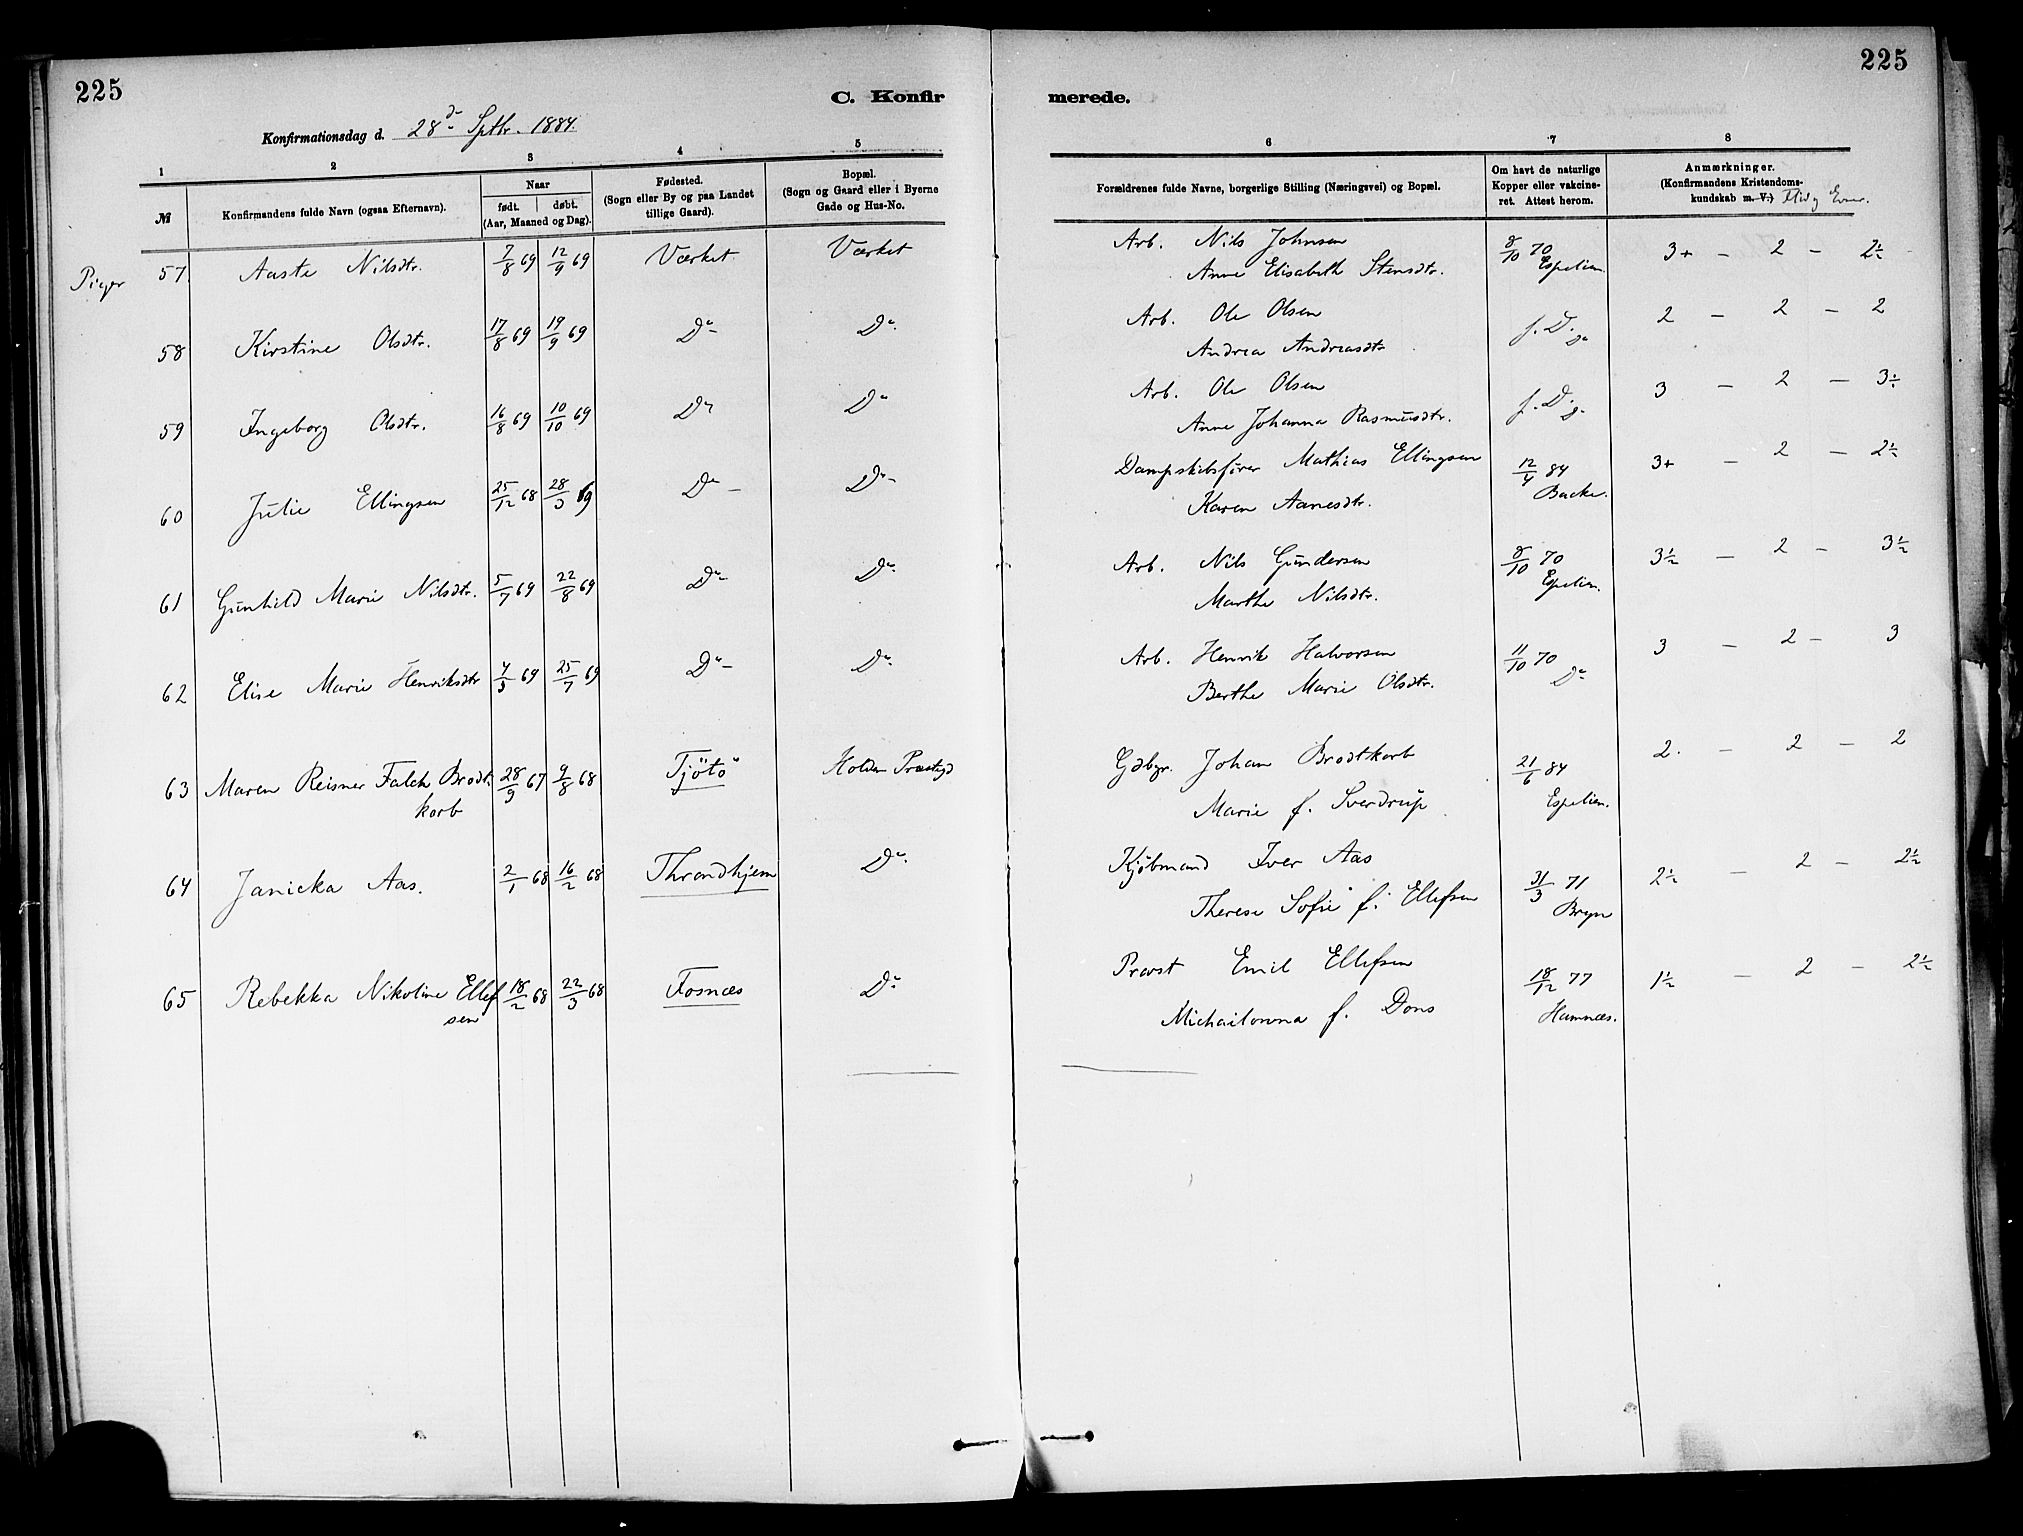 225
225
C. Konfir
merede.
Konfirmationsdag d. 28d- Sptbr. 1884
1 2 3 4 5 6 7 8
№
Konfirmandens fulde Navn (ogsaa Efternavn).
Naar
født. døbt.
(Aar, Maaned og Dag).
Fødested.
(Sogn eller By og paa Landet
tillige Gaard).
Bopæl.
(Sogn og Gaard eller i Byerne
Gade og Hus-No.
Forældrenes fulde Navne, borgerlige Stilling (Næringsvei) og Bopæl.
Om havt de naturlige
Kopper eller vakcine-
ret. Attest herom.
Anmærkninger.
(Konfirmandens Kristendoms-
kundskab m. V.) Flid og Evner.
Piger
57 Aaste Nilsdtr. 7/8 69 12/9 69 Værket Værket Arb. Nils Johnsen 8/10 70 3+ - 2 - 2½
Anne Elisabeth Stensdtr. Espelien.
58 Kirstine Olsdtr. 17/8 69 19/9 69 Do- Do. Arb. Ole Olsen f. D. do 2 - 2 - 2
Andrea Andreasdtr
59 Ingeborg Olsdtr. 16/8 69 10/10 69 Do Do Arb. Ole Olsen f. D. do 3 - 2 - 3½
Anne Johanna Rasmusdtr.
60 Julie Ellingsen 25/12 68 28/3 69 Do - Do- Dampskibsfører Mathias Ellingsen 12/4 84 3+ - 2 - 2½
Karen Aanesdtr. Backe.
61 Gunhild Marie Nilsdtr. 5/7 69 22/8 69 Do- Do. Arb. Nils Gundersen 8/10 70 3½ - 2 - 3½
Marthe Nilsdtr. Espelien.
62 Elise Marie Henriksdtr 4/3 69 25/7 69 Do- Do. Arb. Henrik Halvorsen 11/10 70 Do 3 - 2 - 3
Berthe Marie Olsdtr.
63 Maren Reisner Falch Brodt- 28/9 67 9/8 68 Tjötö Holden Præstgd Gdbgr. Johan Brodtkorb 21/6 84 2. - 2 - 2
korb Marie f. Sverdrup Espelien.
64 Janicka Aas. 2/1 68 16/2 68 Throndhjem Do. Kjöbmand Iver Aas 31/3 71 2½ - 2 - 2½
Therese Sofie f. Ellefsen Bryn
65 Rebekka Nikoline Ellef 18/2 68 22/3 68 Fosnæs Do- Provst Emil Ellefsen 18/12 77 1½ - 2 - 2½
sen Michailonna f. Dons Hamnæs.